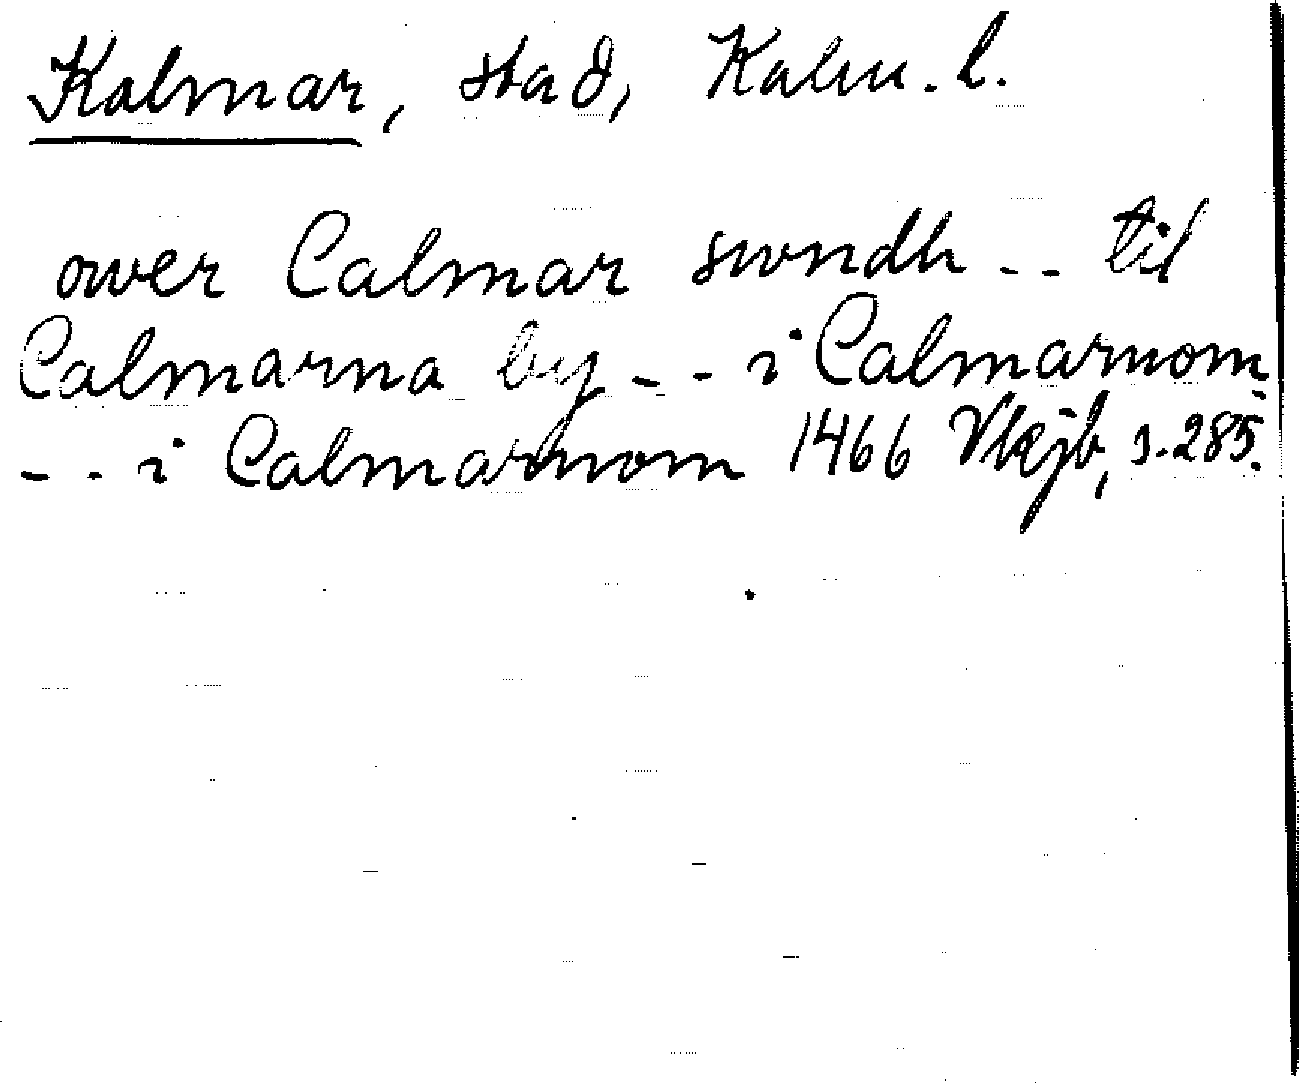 Kalmar, stad, Kalm. l.
ower Calmar swndh -- til
Calmarna by -- i Calmarnom
-- i Calmarnom 1466 Vkjb, s. 285.